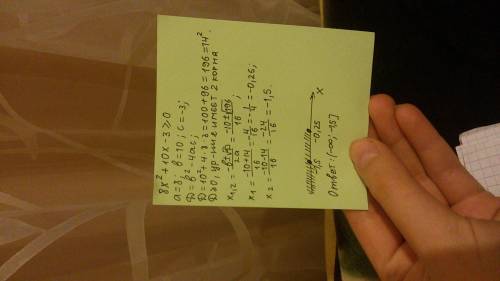 8x²+10x-3≥0
a=8; b=10; c=-3;
D=b²-4ac;
D=10²+4·3·8=100+96=196=14².
D>0; ур-ние имеет 2 корня
x₁,₂=(-b±√D)/2a=(-10±√196)/16;
x₁=(-10+14)/16=4/16=-1/4=-0,25;
x₂=(-10-14)/16=-24/16=-1,5.
-1,5 -0,25 x
Ответ: (-∞; -1,5]